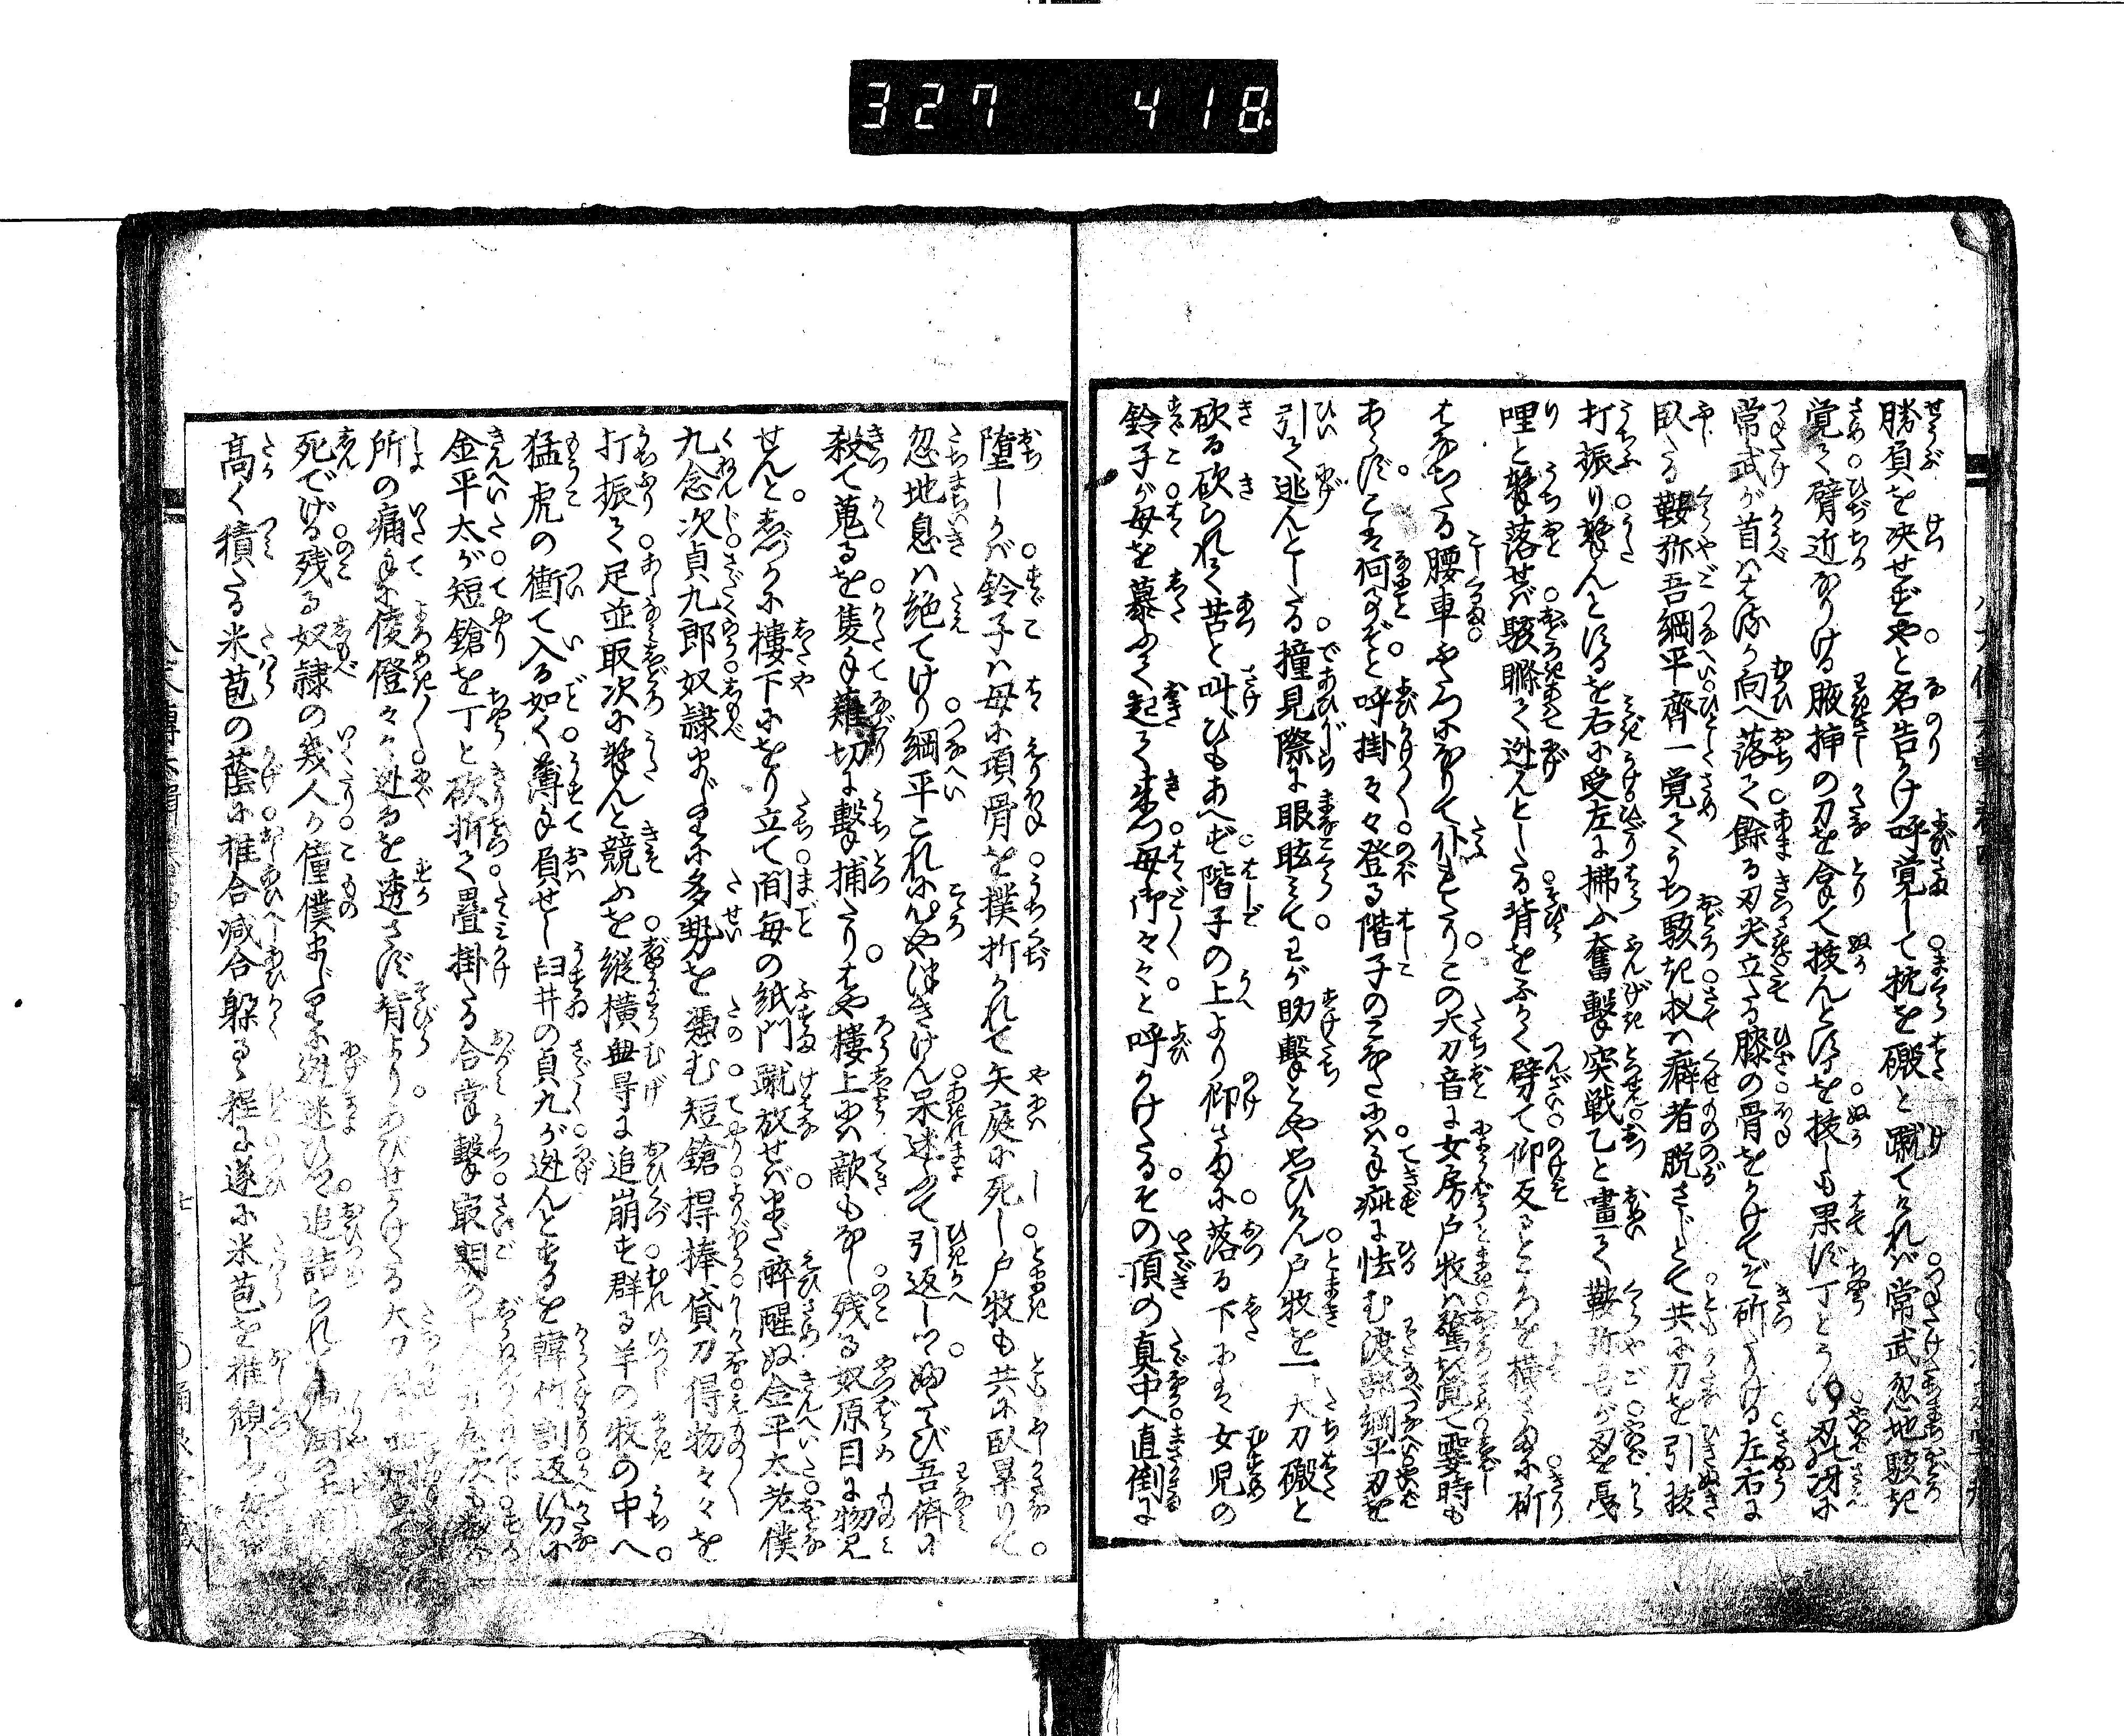 327 418
勝負を决せずやと名告かけ呼覚して枕を礑と蹴てければ常武忽地駭き
覚て臂近なりける腋挿の刀を拿て抜んとするを抜しも果ず丁とうつ刃の冴に
常武が首ははるか向へ落て餘る刃尖立たる膝の骨をかけてぞ斫たりける左右に
臥たる鞍弥吾綱平齊一覚てうち駭き扨は癖者脱さじとて共に刀を引抜
打振り撃んとするを右に受左に拂ふ奮撃突戦乙と畫て鞍弥吾が刃を戞
哩と撃落せば駭騰て迯んとしたる背をふかく劈て仰反るところを横さまに斫
はなちたる腰車ふたつになりて仆れたりこの大刀音に女房戸牧は驚き覚て霎時も
あらずこは何ぞと呼掛々々登る階子のこなたには手疵に怯む渡部綱平刃を
引て逃んとしたる撞見際に眼眩みてわが助撃とや思ひけん戸牧を一大刀礑と
砍る砍られて苦と叫びもあへず階子の上より仰さまに落る下には女児の
鈴子が母を慕ふて起て来つ母御々々と呼かけたるその頂の真中へ直倒に
堕しかば鈴子は母に項骨を撲折かれて矢庭に死し戸牧も共に臥累りて
忽地息は絶てけり綱平これに心や後きけん呆迷ふて引返しつふたたび吾儕に
殺て蒐るを隻手薙切に撃捕たりはや樓上には敵もなし残る奴原目に物見
せんと静かに樓下にをり立て間毎の紙門蹴放せばまだ醉醒ぬ金平太老僕
九念次貞九郎奴隷まじりに多勢を憑む短鎗捍棒貸刀得物々々を
打振て足並取次に撃んと競ふを縱横無㝵に追崩す群る羊の牧の中へ
猛虎の衝て入る如く薄手負せし臼井の貞九が迯んとするを韓竹割返す刀に
金平太が短鎗を丁と砍折て畳掛たる合掌撃最期の
所の痛手に倰儘々々迯るを透さず背よりあびせかけたる大刀
死でける残る奴隷の幾人か僮僕まじりに迯迷ひつ追詰られて
高く積たる米苞の蔭に推合滅合躱るる程に遂に米苞を推頽しつ